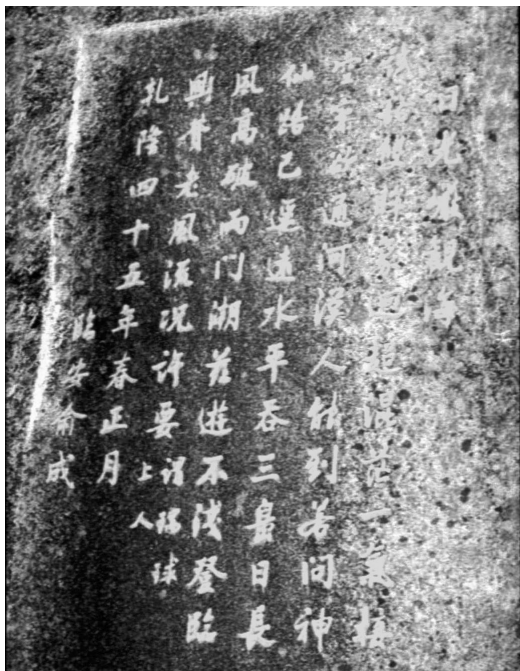 日光巖觀海
起混茫一氣
通河漢人能到若問神
仙路已遙遠水平吞三島日長
風高破兩門潮茲遊不淺登臨
興耆老風流況許要謂瑞球
上人
乾隆四十五年春正月
臨安俞成